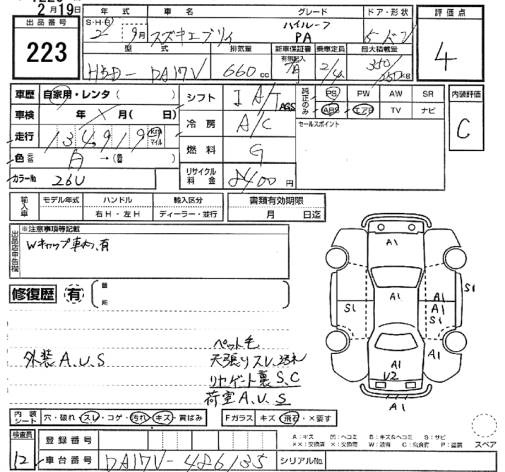 2月19日
出品番号
223
年式 車名 グレード ドア・形状
S・H・R 2年9月 スズキエブリイ ハイルーフ PA 5ドアバン
評価点
4
型式 排気量 新車保証書 乗車定員 最大積載量
有無記入
HBD-DA17V 660cc 2/4 350/250Kg
車歴 自家用・レンタ
車検 年 月(日)
走行 134,919 Km マイル
色 元色 A → (替)
カラーNo 26U
シフト IA/T AGS
冷房 A/C
燃料 G
リサイクル料金 8400円
純正のみ PS PW AW SR
ABS エアB TV ナビ
セールスポイント
内装評価
C
輸入車 モデル年式 ハンドル 輸入区分
右H・左H ディーラー・並行
書類有効期限
月 日迄
出品店申告欄
※注意事項等記載
Wキャップ車両有
修復歴 有
外装A.U.S
ペット毛
天張りスレ、汚れ
リヤゲート裏S.C
荷室A.U.S
A1
A1
S1
S1
A1
A1
S1
A1
U2
A1
内装シート 穴・破れ・スレ・コゲ・汚れ・キズ・黄ばみ Fガラス キズ・飛石・×要す
スペア
A:キズ U:ヘコミ B:キズ&ヘコミ S:サビ
××:交換済 ×:要交換 W:波有 C:腐食 P:塗装
検査員
12
登録番号
車台番号 DA17V-486135 シリアルNo